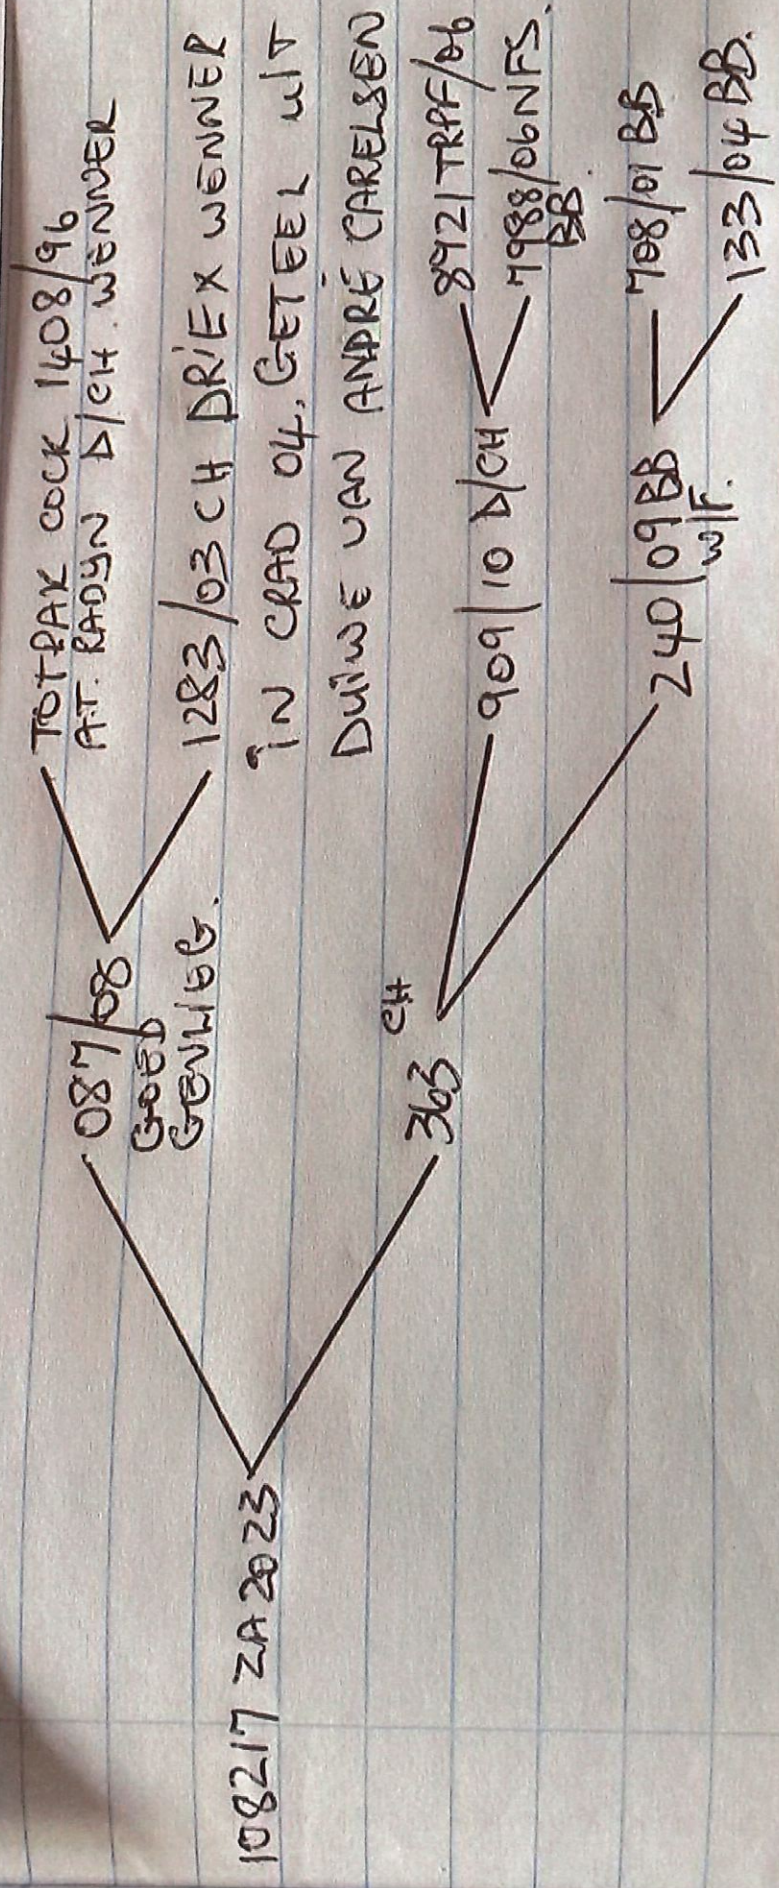 108217 ZA 2023
087/08
GOED
GEVLIEG.
TOTPAK COCK 1408/96
A.T. RADYN D/CH. WENNER
1283/03 CH DRIEX WENNER
IN CRAD 04. GETEEL UIT
DUIWE VAN ANDRÉ CARELSEN
363 CH
909/10 D/CH
8921 TRPF/06
7988/06 NFS.
BB.
240/09 BB
W/F.
708/01 BB
133/04 BB.